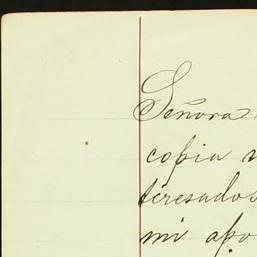 Señora
copia
teresados
mi apo